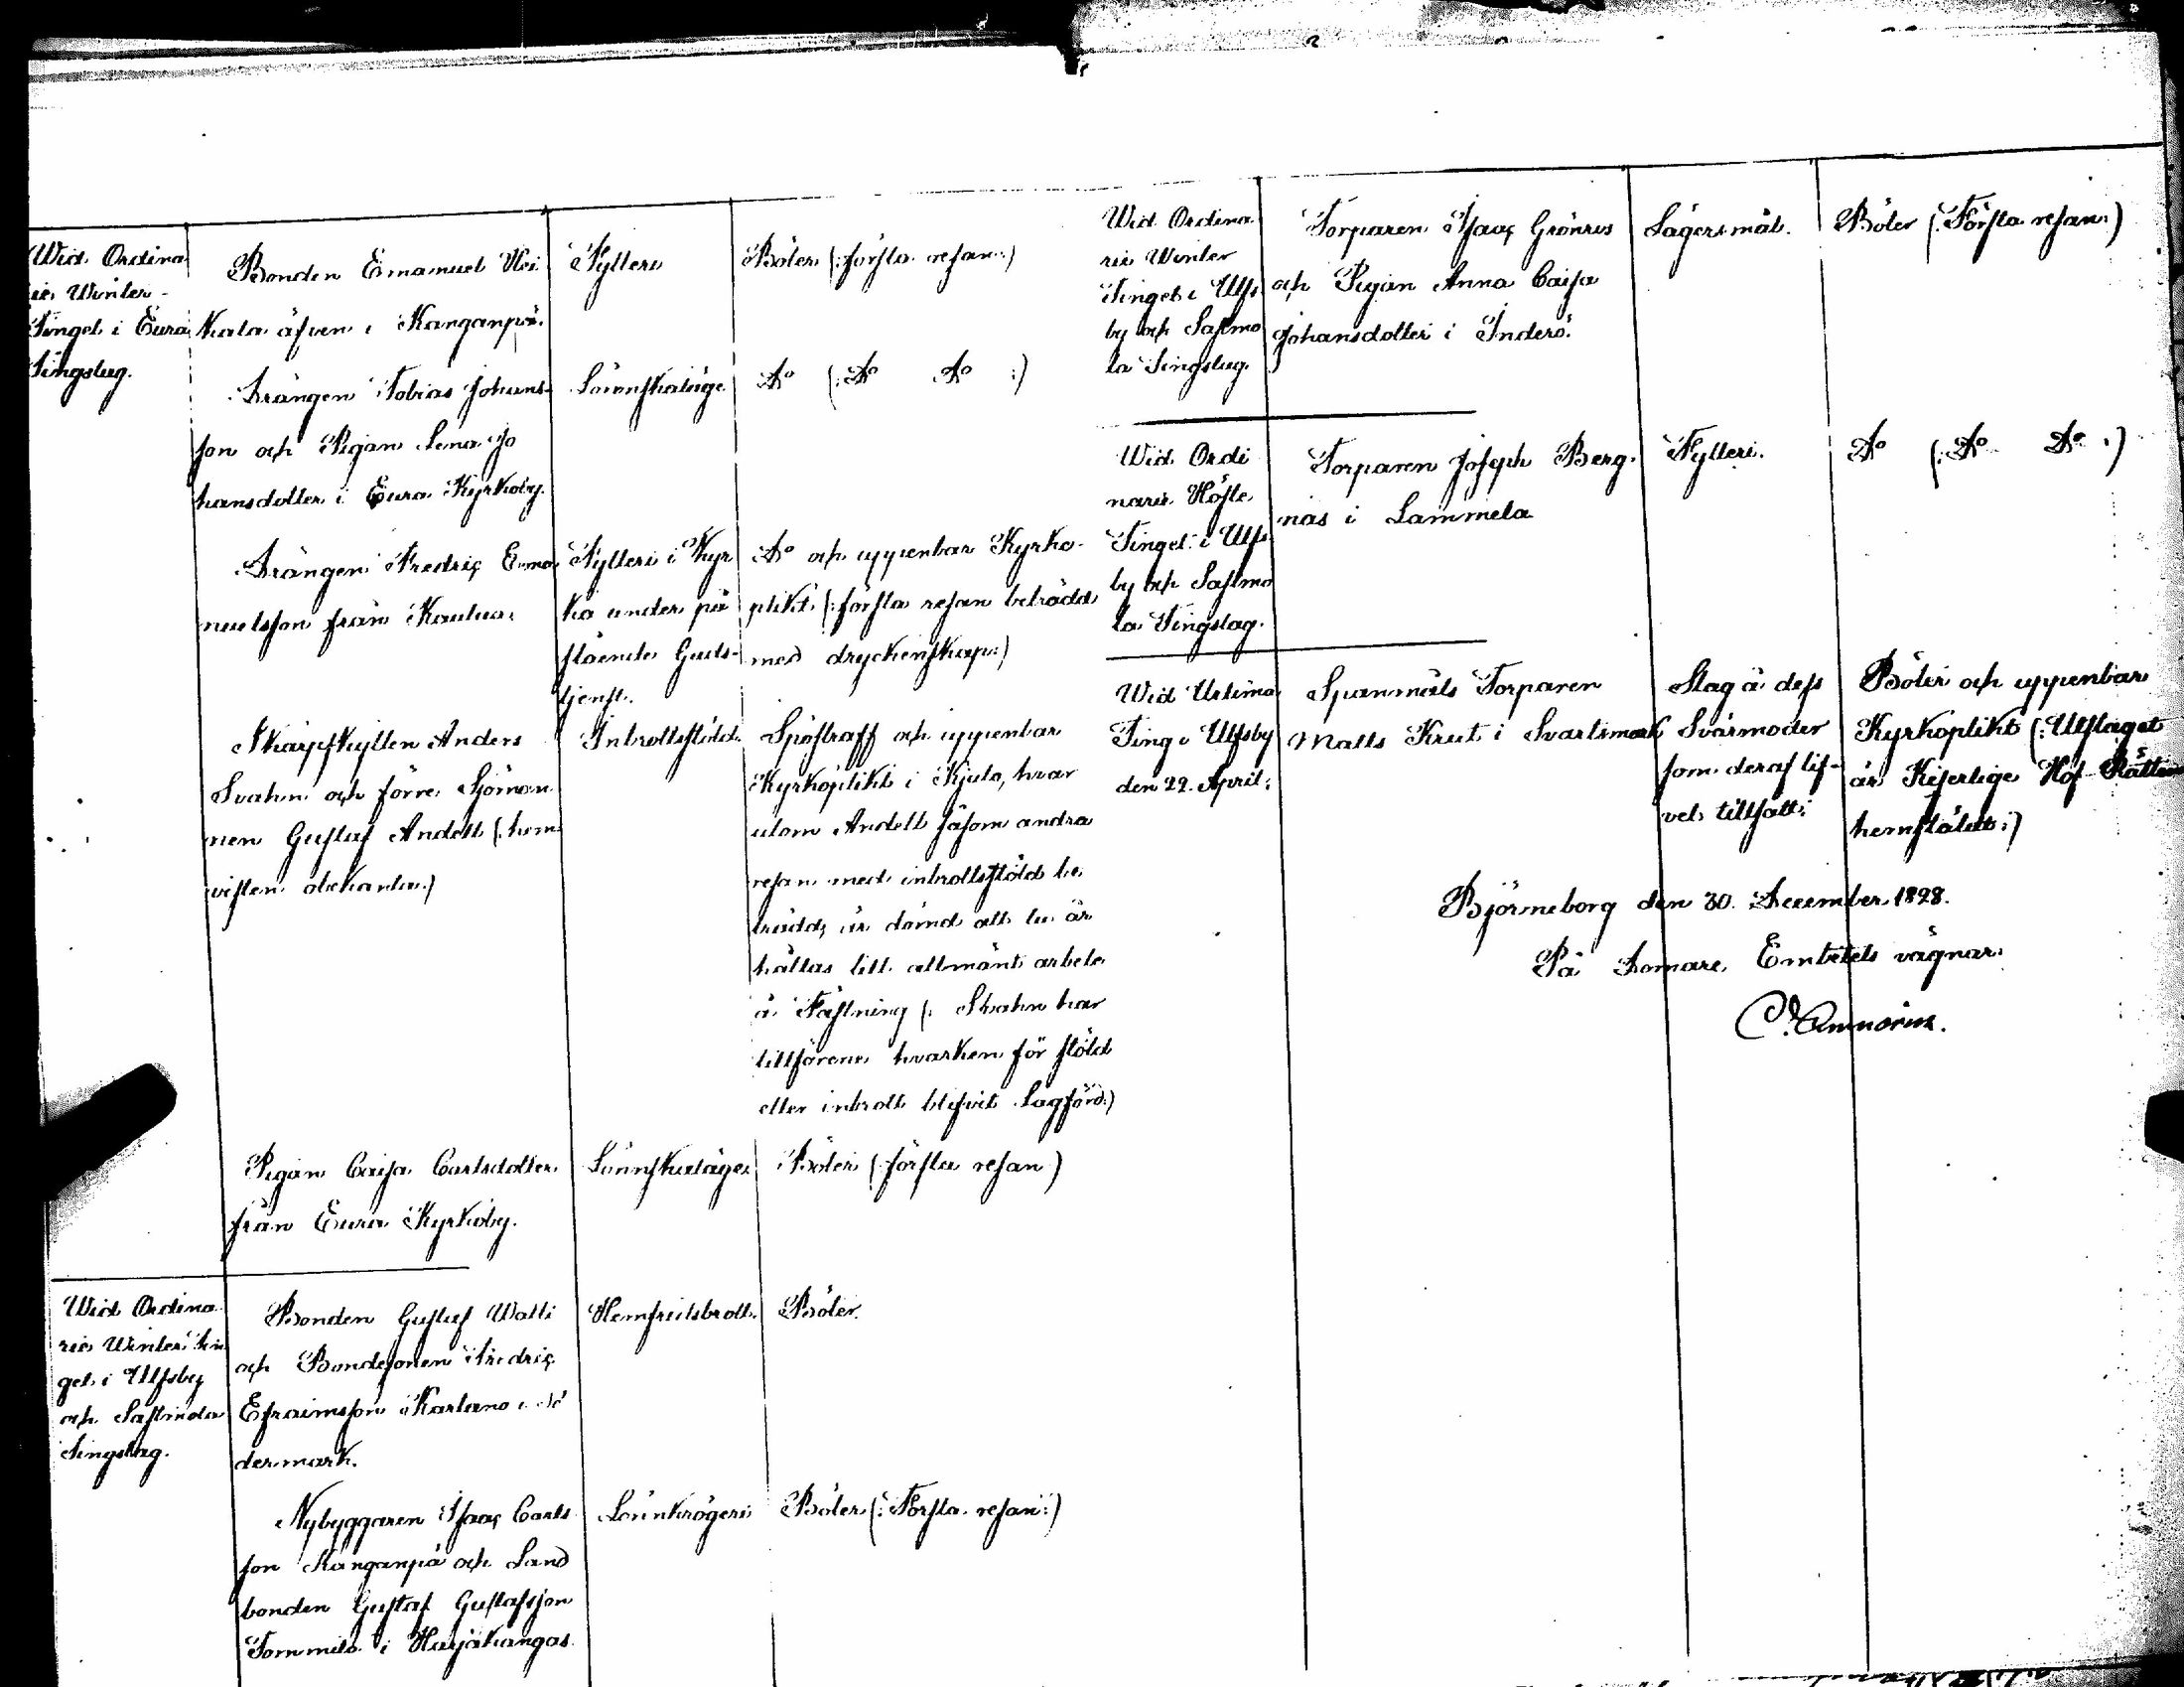 Wid Ordina
rie Winter
Tinget i Eura
Tingslag.
Bonden Emanuel Hei
kala äfven i Kanganpä.
Fylleri
Böter (: första resan :)
Drängen Tobias Johans
son och Pigan Lena Jo
hansdotter i Eura Kyrkoby.
Lönnskaläge.
Do (: Do Do :)
Drängen Fredric Ema
nuelsson från Kauttua.
Fylleri i Kyr
ka under på
stående Guds-
tjenst.
Do och uppenbar Kyrko-
plikt (: första resan beträdd
med dryckenskap :)
Skarpskytten Anders
Svahn och förre Sjöman
nen Gustaf Andell (: hem
visten obekanta :)
Inbrottsstöld.
Spöstraff och uppenbar
Kyrkoplikt i Kjulo, hvar
utom Andell såsom andra
resan med inbrottsstöld be
trädd, är dömd att tu år
hållas till allmänt arbete
å Fästning (: Svahn har
tillförene hvarken för stöld
eller inbrott blifvit lagförd :)
Pigan Caisa Carlsdotter
från Eura Kyrkoby.
Lönnskaläge.
Böter (: första resan :)
Wid Ordina
rie Winter Tin
get i Ulfsby
och Sastmola
Tingslag.
Bonden Gustaf Walli
och Bondesonen Fredric
Efraimsson Karlano i Sö
dermark.
Hemfridsbrott.
Böter.
Nybyggaren Isaac Carls
son Kanganpä och Land
bonden Gustaf Gustafsson
Tommila i Harjakangas
Lönnkrögeri
Böter (: Första resan :)
Wid Ordina
rie Winter
Tinget i Ulfs
by och Sastmo
la Tingslag.
Torparen Isaac Grönros
och Pigan Anna Caisa
Johansdotter i Inderö.
Lägersmål.
Böter (: Första resan :)
Wid Ordi
narie Höste
Tinget i Ulfs
by och Sastmo
la Tingslag.
Torparen Joseph Berg-
näs i Lammela
Fylleri.
Do (: Do Do :)
Wid Urtima
Ting i Ulfsby
den 22. April.
Spanmåls Torparen
Matts Krut i Svartsmark
Slag å dess
Svärmoder
som deraf lif-
vet tillsatt.
Böter och uppenbar
Kyrkoplikt (: Utslaget
är Kejserlige Hof Rätten
hemstäldt :)
Björneborg den 30. December 1828.
På Domare Embetets vägnar